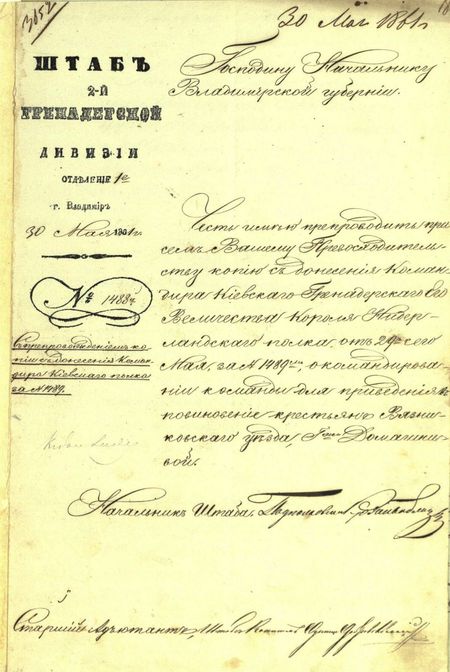 3652
30 Мая 1861 г.
ШТАБЪ
2-Й
ГРЕНАДЕРСКОЙ
ДИВИЗІИ
ОТДѢЛЕНІЕ 1е
г. Владиміръ
30 Мая 1861 г.
№ 1488
Съ препровожденіемъ ко-
піи съ донесенія Коман-
дира Кіевскаго полка
за № 1489.
Господину Начальнику
Владимірской губерніи.
Честь имѣю препроводить при
семъ Вашему Превосходитель-
ству копію съ донесенія Коман-
дира Кіевскаго Гренадерскаго Его
Величества Короля Нидер-
ландскаго полка, отъ 29го сего
Мая, за № 1489, о командирова-
ніи команды для приведенія въ
повиновеніе крестьянъ Вязни-
ковскаго уѣзда,
Начальникъ Штаба,
Старшій Адъютантъ,